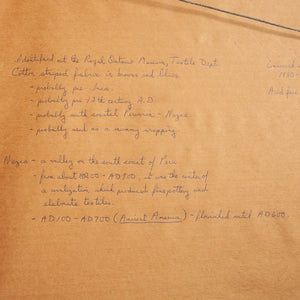 Identified at the Royal Ontario Museum, Textile Dept.
Cotton striped fabric in brown and blues.
- probably pre Inca.
- probably pre 12th century A.D.
- probably south coastal Peruvian - Nazca.
- probably used as a mummy wrapping.
Nazca - a valley on the south coast of Peru
- from about AD200 - AD900, it was the center of
a civilization which produced fine pottery and
elaborate textiles.
- AD100 - AD700 (Ancient America) - flourished until AD600.
1950
Acid free